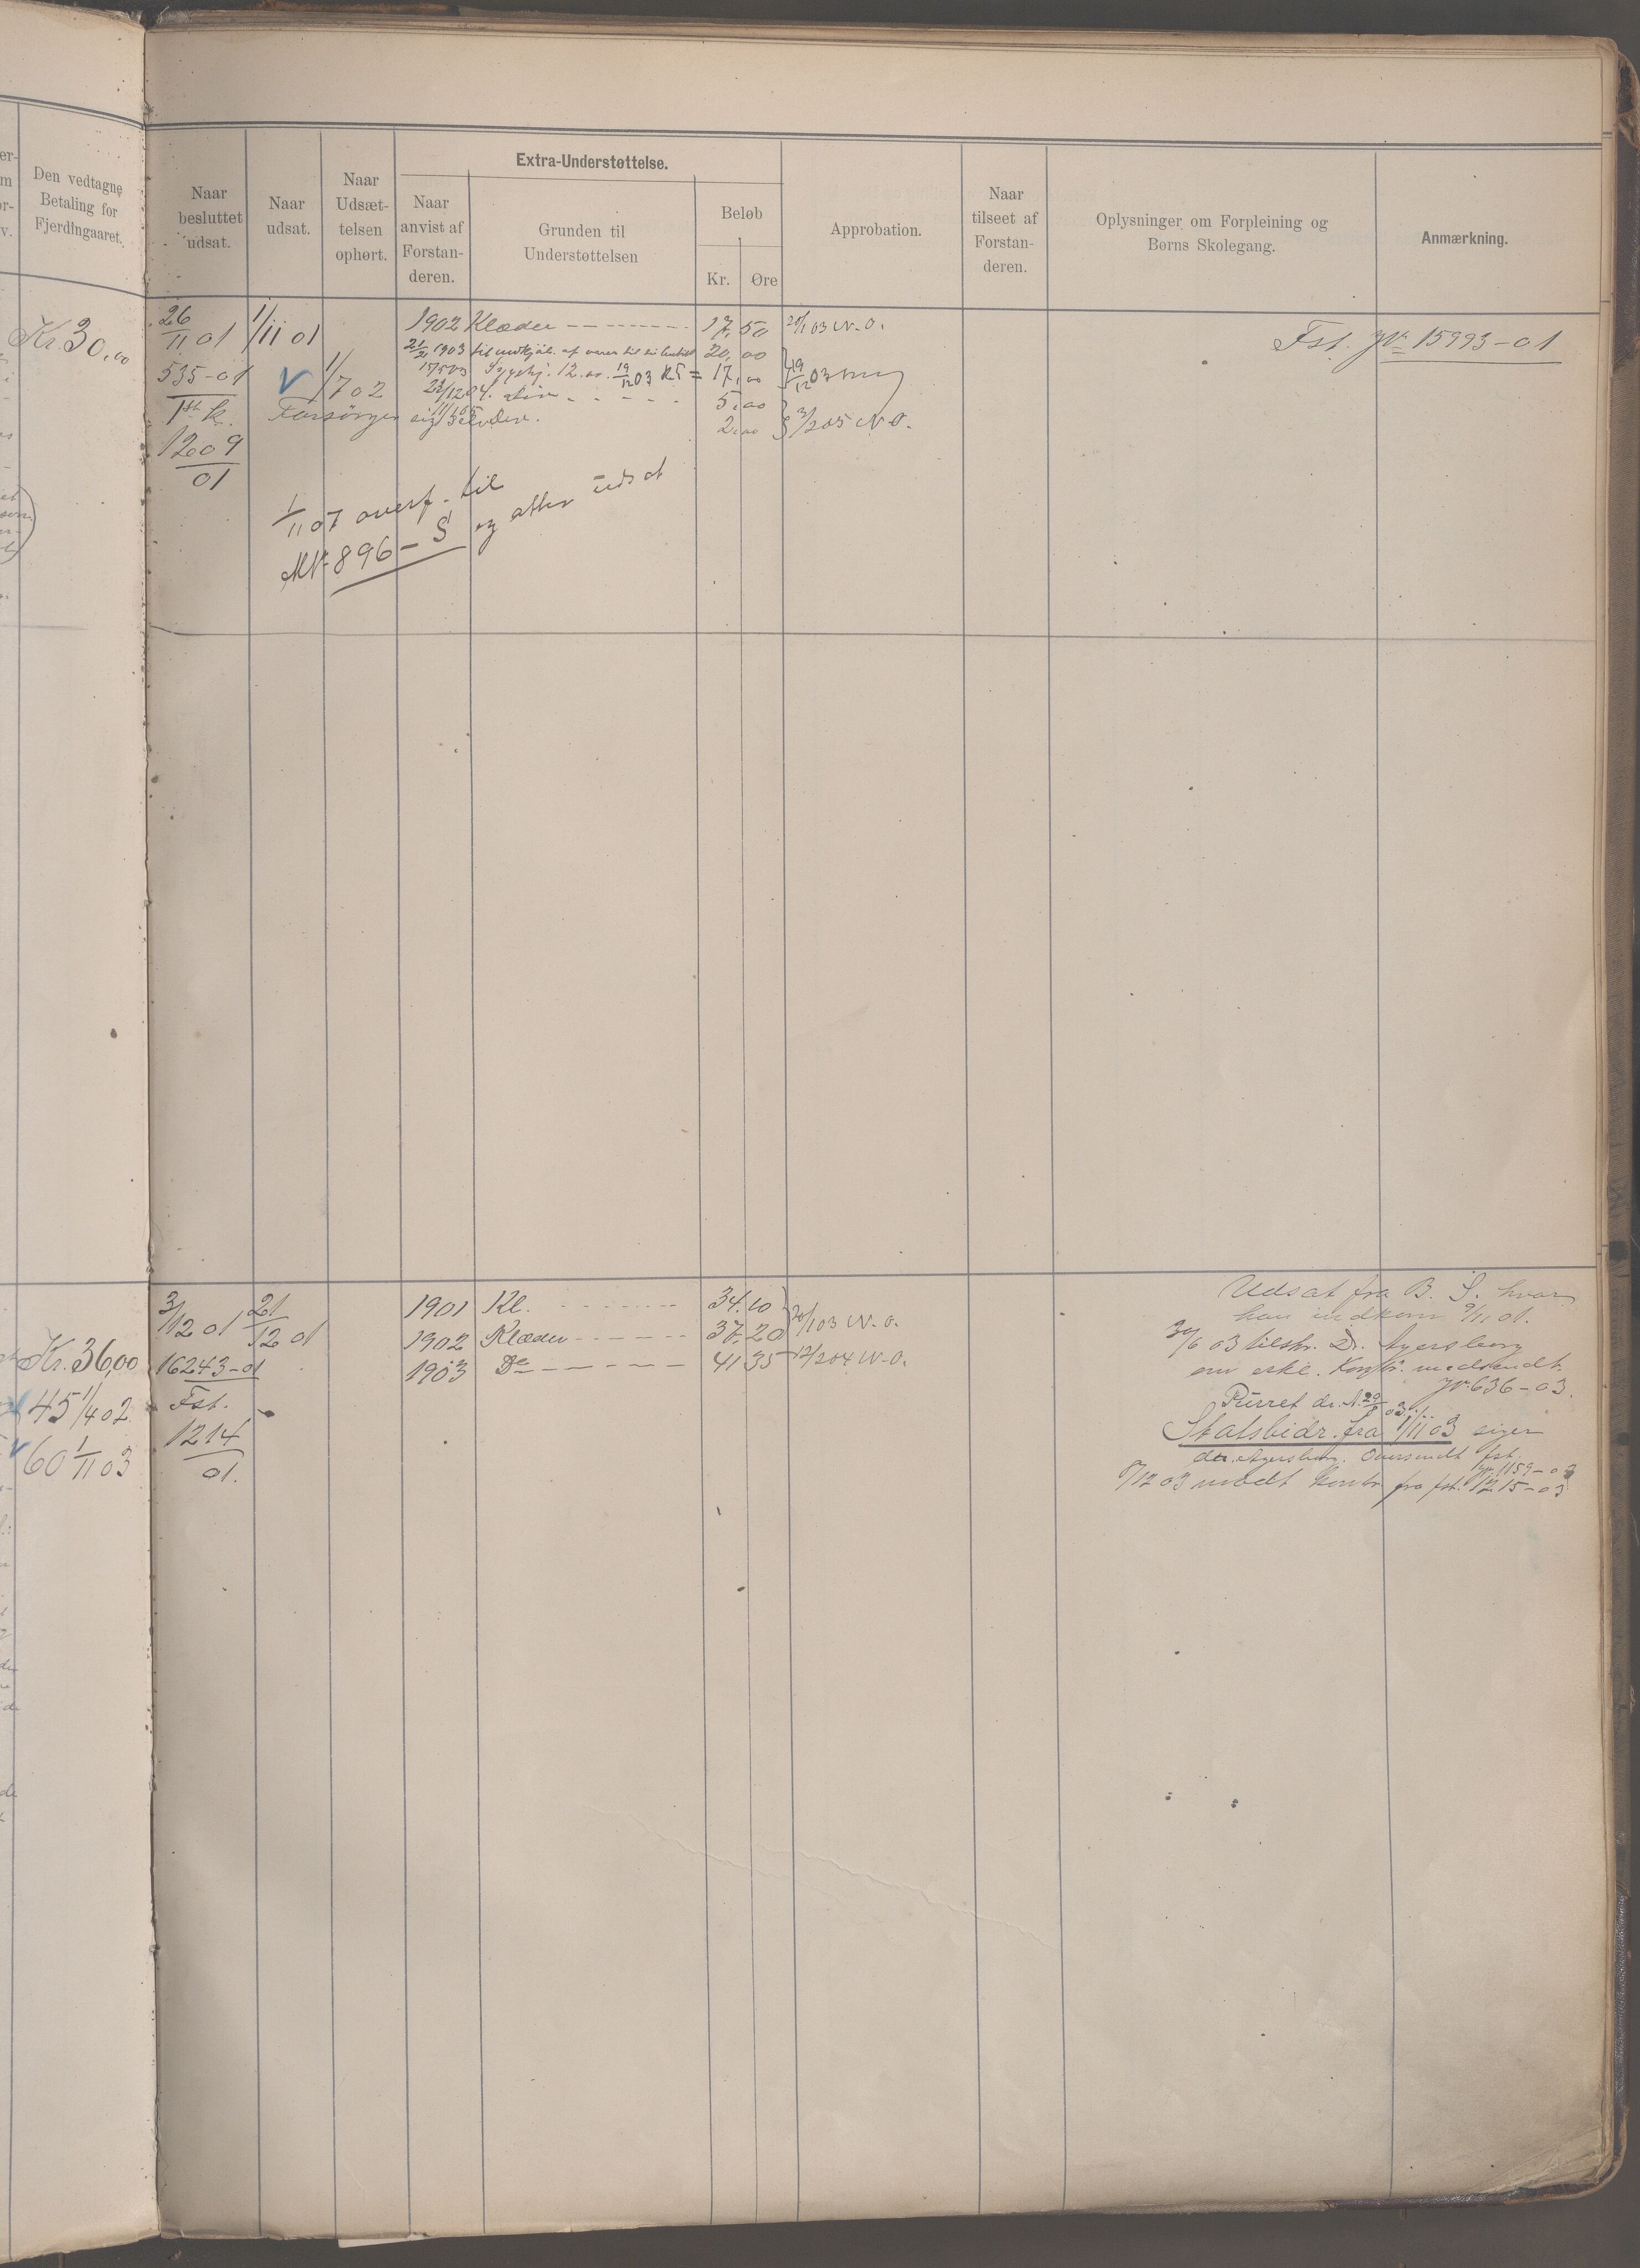 Den vedtagne
Betaling for
Fjerdingaaret.
Naar
besluttet
udsat.
Naar
udsat.
Naar
Udsæt-
telsen
ophørt.
Extra-Understøttelse.
Naar
anvist af
Forstan-
deren.
Grunden til
Understøttelsen
Beløb
Kr. Øre
Approbation.
Naar
tilseet af
Forstan-
deren.
Oplysninger om Forpleining og
Børns Skolegang.
Anmærkning.
Kr. 30,00
26/11 01 1/11 01
535-01
1/7 02
1st k.
1209
01
Forsørger sig selv
1902 Klæder 17,50 20/1 03 N. O.
1903 til 20,00
12.00 19/12 03 k 5 = 17,00 19/12 03
5,00
2,00 3/2 05 N O.
1/11 07 overf. til
No 896 - S og atter udsat
Fst. Jr 15993-01
Kr. 36,00
45 1/4 02
60 1/11 03
3/12 01 21/12 01
16243-01
Fst.
1214
01.
1901 Kl. 34.10
1902 Klæder 37.20 20/1 03 N. O.
1903 Do 41 35 12/2 04 N. O.
Udsat fra B. S. hvor
han indkom 9/11 01.
30/6 03 tilskr. Dr.
om Kontr. medsendt.
Jr. 636-03.
Purret dr. A. 29/8 03.
Statsbidr. fra 1/11 03 siger
Oversendt fst.
1159-03
8/12 03 modt Kontr fra fst. 1215-03